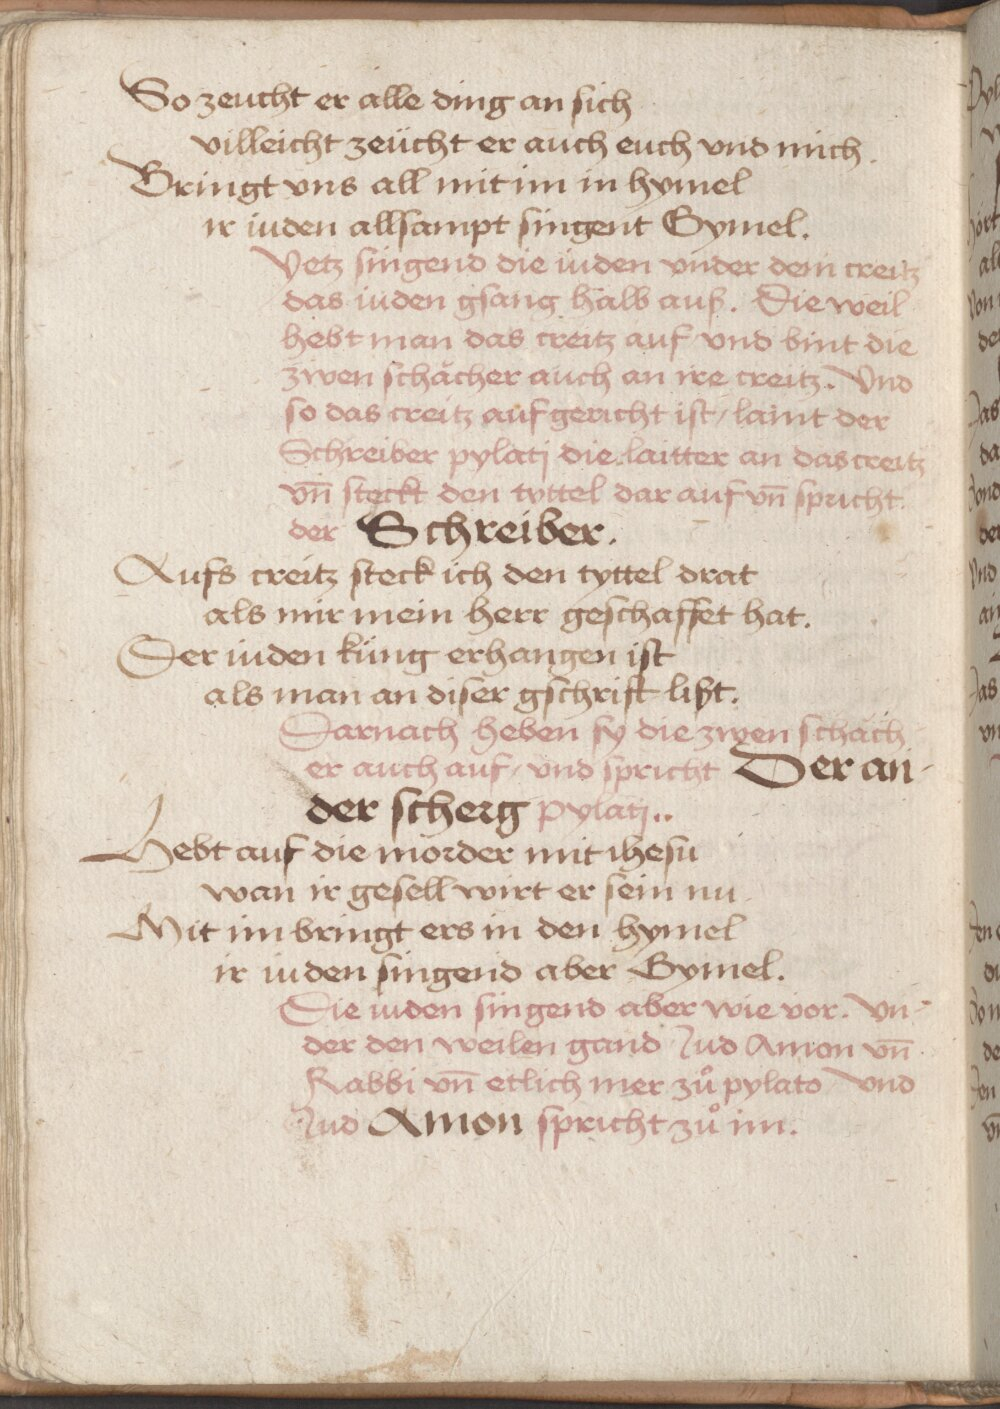 So zeucht er alle ding an sich
villeicht zeücht er auch euch vnd mich.
Bringt vns all mit im in hymel
ir iuden allsampt singent Gymel.
Yetz singend die iuden vnder dem creitz
das iuden gsang halb auß. Die weil
hebt man das creitz auf vnd bint die
zwen schächer auch an ire creitz. Vnd
so das creitz auf gericht ist / laint der
Schreiber pylatj die laitter an das creitz
vn̄ steckt den tyttel dar auf vn̄ spricht.
der Schreiber.
Aufs creitz steck ich den tyttel drat
als mir mein herr geschaffet hat.
Der iuden küng erhangen ist
als man an diser gschrift lißt.
Darnach heben sy die zwen schäch
er auch auf / vnd spricht Der an-
der scherg pylatj..
Hebt auf die mörder mit ihesu
wan ir gesell wirt er sein nu.
Mit im bringt ers in den hymel
ir iuden singend aber Gymel.
Die iuden singend aber wie vor. Vn-
der den weilen gand Jud Amon vn̄
Rabbi vn̄ etlich mer zů pylato vnd
Jud Amon spricht zů im.